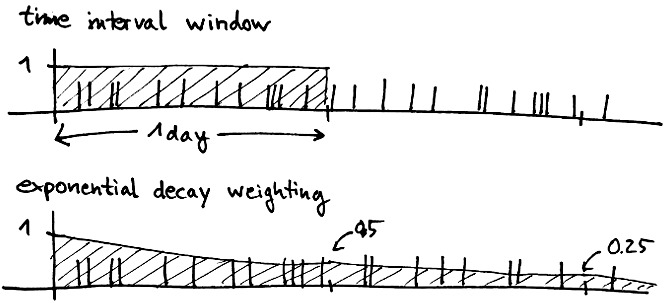 time interval window
1
1 day
exponential decay weighting
1
0.5
0.25